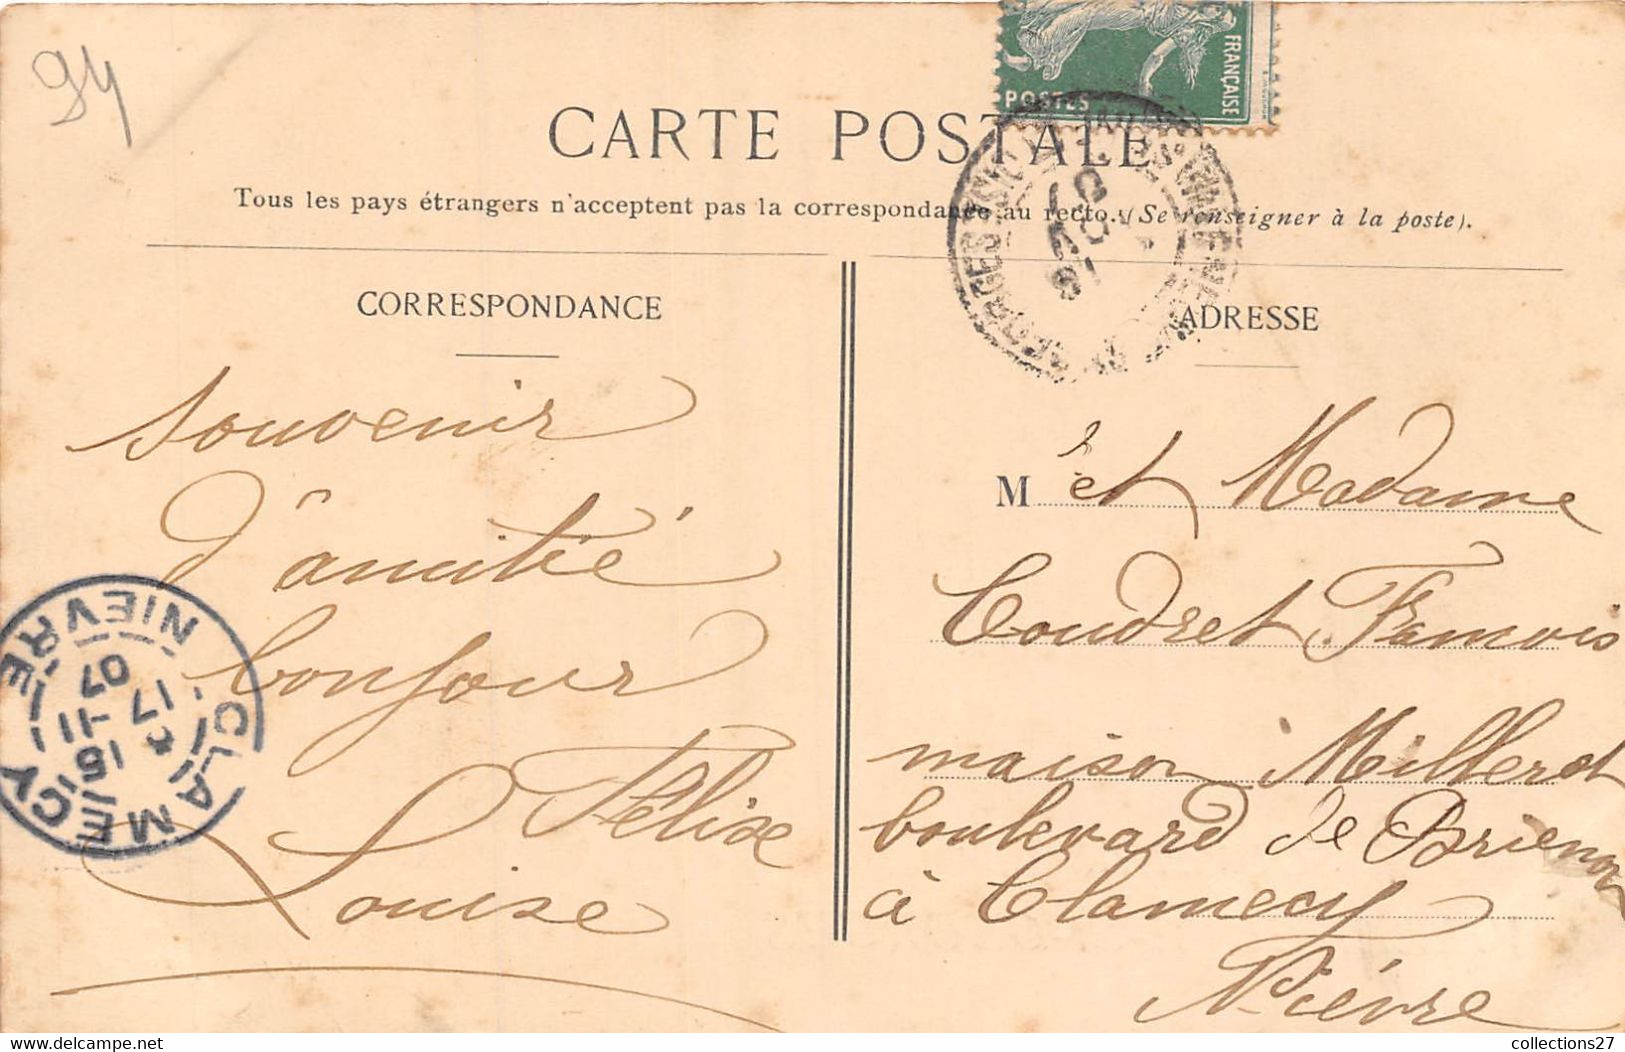 94
FRANÇAISE
POSTES
CARTE POSTALE
Tous les pays étrangers n'acceptent pas la correspondance au recto. (Se renseigner à la poste).
CORRESPONDANCE
souvenir
d'amitié
bonjour
Félise
Louise
ADRESSE
M r et Madame
Coudret François
maison Milleret
boulevard de Brienon
à Clamecy
Nièvre
CLAMECY
NIEVRE
15
17 -11
07
delcampe.net
collections27